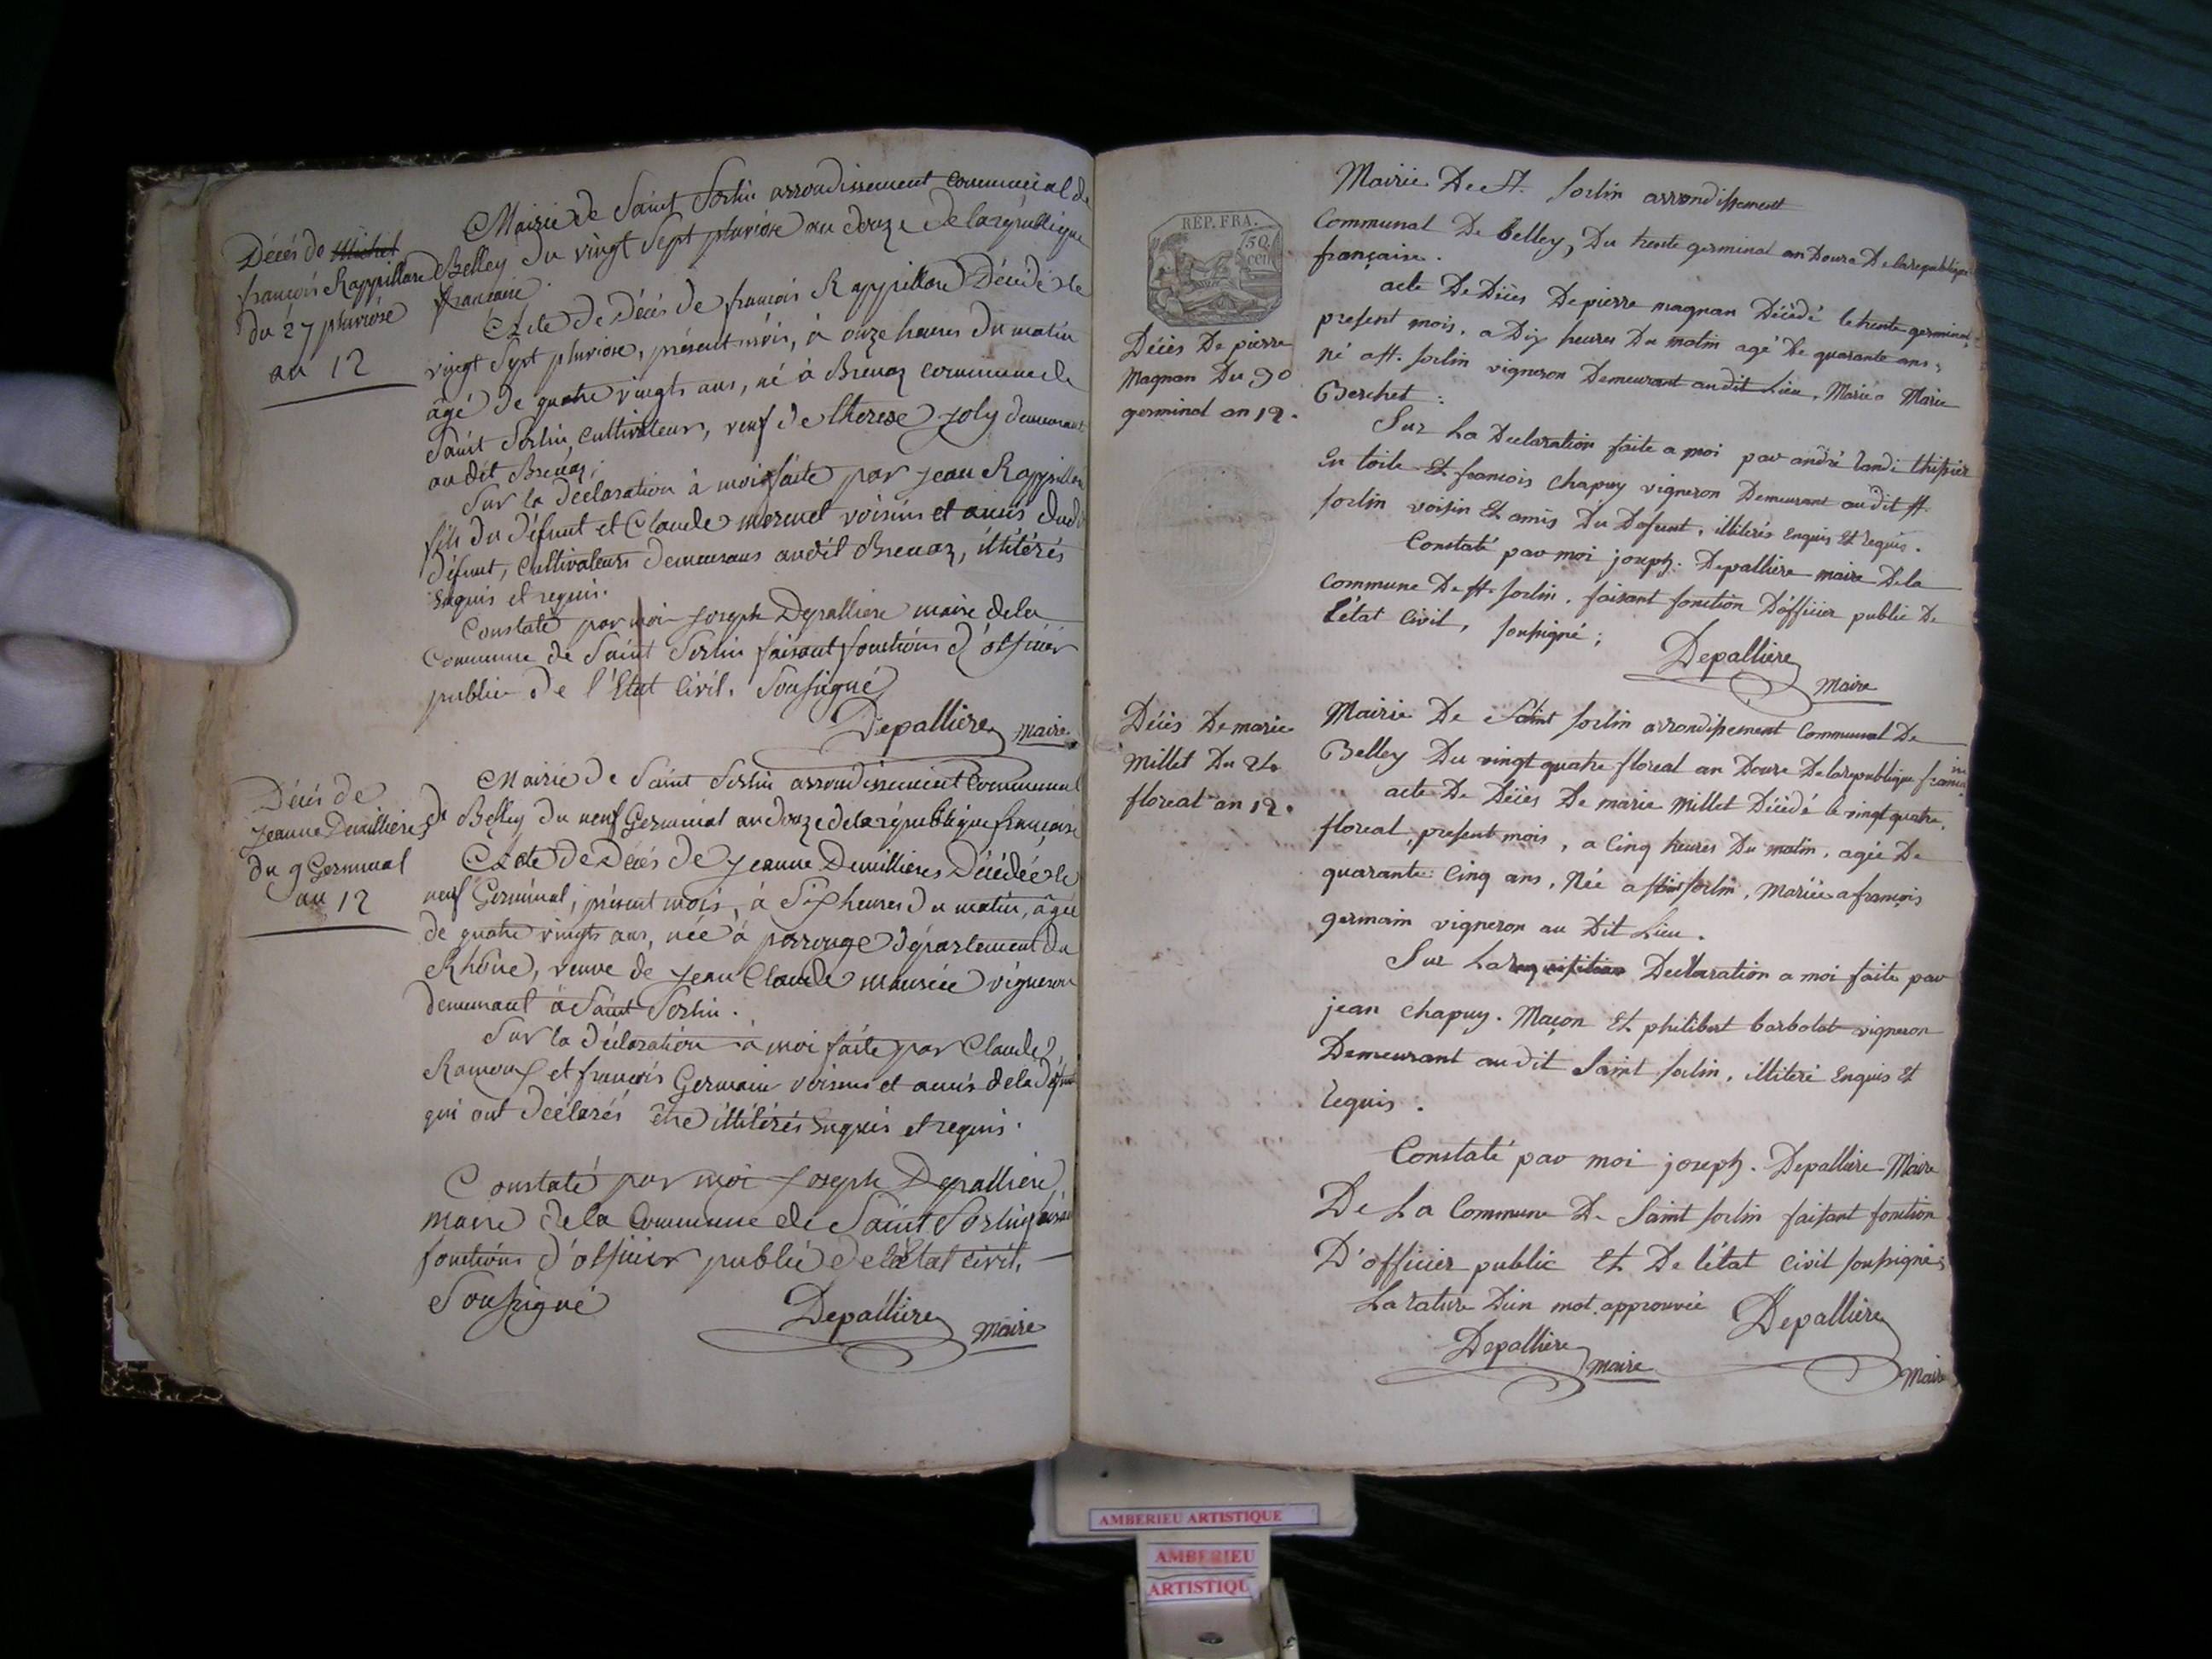 Décès de Michel
françois Rappillard
du 27 pluviôse
an 12
Mairie de Saint Sorlin arrondissement communal de
Belley du vingt Sept pluviôse an douze de la république
française.
Acte de Décès de françois Rappillard Décédé le
vingt Sept pluviose, présent mois, à onze heures du matin
âgé de quatre vingts ans, né à Brenaz commune de
Saint Sorlin, cultivateur, veuf de therese Joly demeurant
audit Brenaz;
Sur la déclaration à moi faite par Jean Rappillard
fils du défunt et Claude mermet voisins et amis dudit
défunt, Cultivateurs demeurans audit Brenaz, illitérés
Enquis et requis.
Constaté par moi Joseph Depalliere maire de la
Commune de Saint Sorlin faisant fonctions d'officier
public de l'Etat Civil. Soussigné
Depalliere maire
Décès de
Jeanne Demillieres
du 9 Germinal
an 12
Mairie de Saint Sorlin arrondissement Communal
de Belley du neuf Germinal an douze de la république française
Acte de Décès de Jeanne Demillieres Décédée le
neuf Germinal, présent mois, à Six heures du matin, âgée
de quatre vingts ans, née à département du
Rhône, veuve de Jean Claude vigneron
demeurant à Saint Sorlin.
Sur la déclaration à moi faite par Claude
Ramoux et françois Germain voisins et amis de la défunte
qui ont déclarés être illitérés Enquis et requis.
Constaté par moi Joseph Depalliere,
maire de la Commune de Saint Sorlin faisant
fonctions d'officier public de l'état civil,
Soussigné
Depalliere maire
REP. FRA.
50 cen
Décès De pierre
Magnan Du 30
germinal an 12.
Mairie De St. sorlin arrondissement
Communal De belley, Du trente germinal an Douze De la republique
française.
acte De Décès De pierre magnan Décédé le trente germinal,
present mois, a Dix heures Du matin agé De quarante ans,
né a St. sorlin vigneron Demeurant audit Lieu, Marié a Marie
Berchet:
Sur La Declaration faite a moi par andré
En toile Et françois Chapuy vigneron Demeurant audit St.
sorlin voisin Et amis Du Defunt, illiterés Enquis Et requis.
Constaté par moi joseph. Depalliere maire De la
Commune De St. sorlin, faisant fonction D'officier public De
L'état Civil, soussigné;
Depalliere
Maire
Décès De marie
Millet Du 24
floreal an 12.
Mairie De Saint sorlin arrondissement Communal De
Belley Du vingt quatre floreal an Douze De la republique francaise
acte De Décès De marie Millet Décédé le vingt quatre
floreal, present mois, a Cinq heures Du matin, agée De
quarante Cinq ans, Née a st sorlin, Mariée a françois
germain vigneron au Dit Lieu.
Sur La requisition Declaration a moi faite par
jean Chapuy. Maçon Et philibert barbolat vigneron
Demeurant audit Saint sorlin, illiteré Enquis Et
requis.
Constaté par moi joseph. Depalliere Maire
De La Commune De Saint sorlin faisant fonction
D'officier public Et De l'état Civil soussigné;
La rature D'un mot approuvée Depalliere
Depalliere maire Maire
AMBERIEU ARTISTIQUE
AMBERIEU
ARTISTIQU